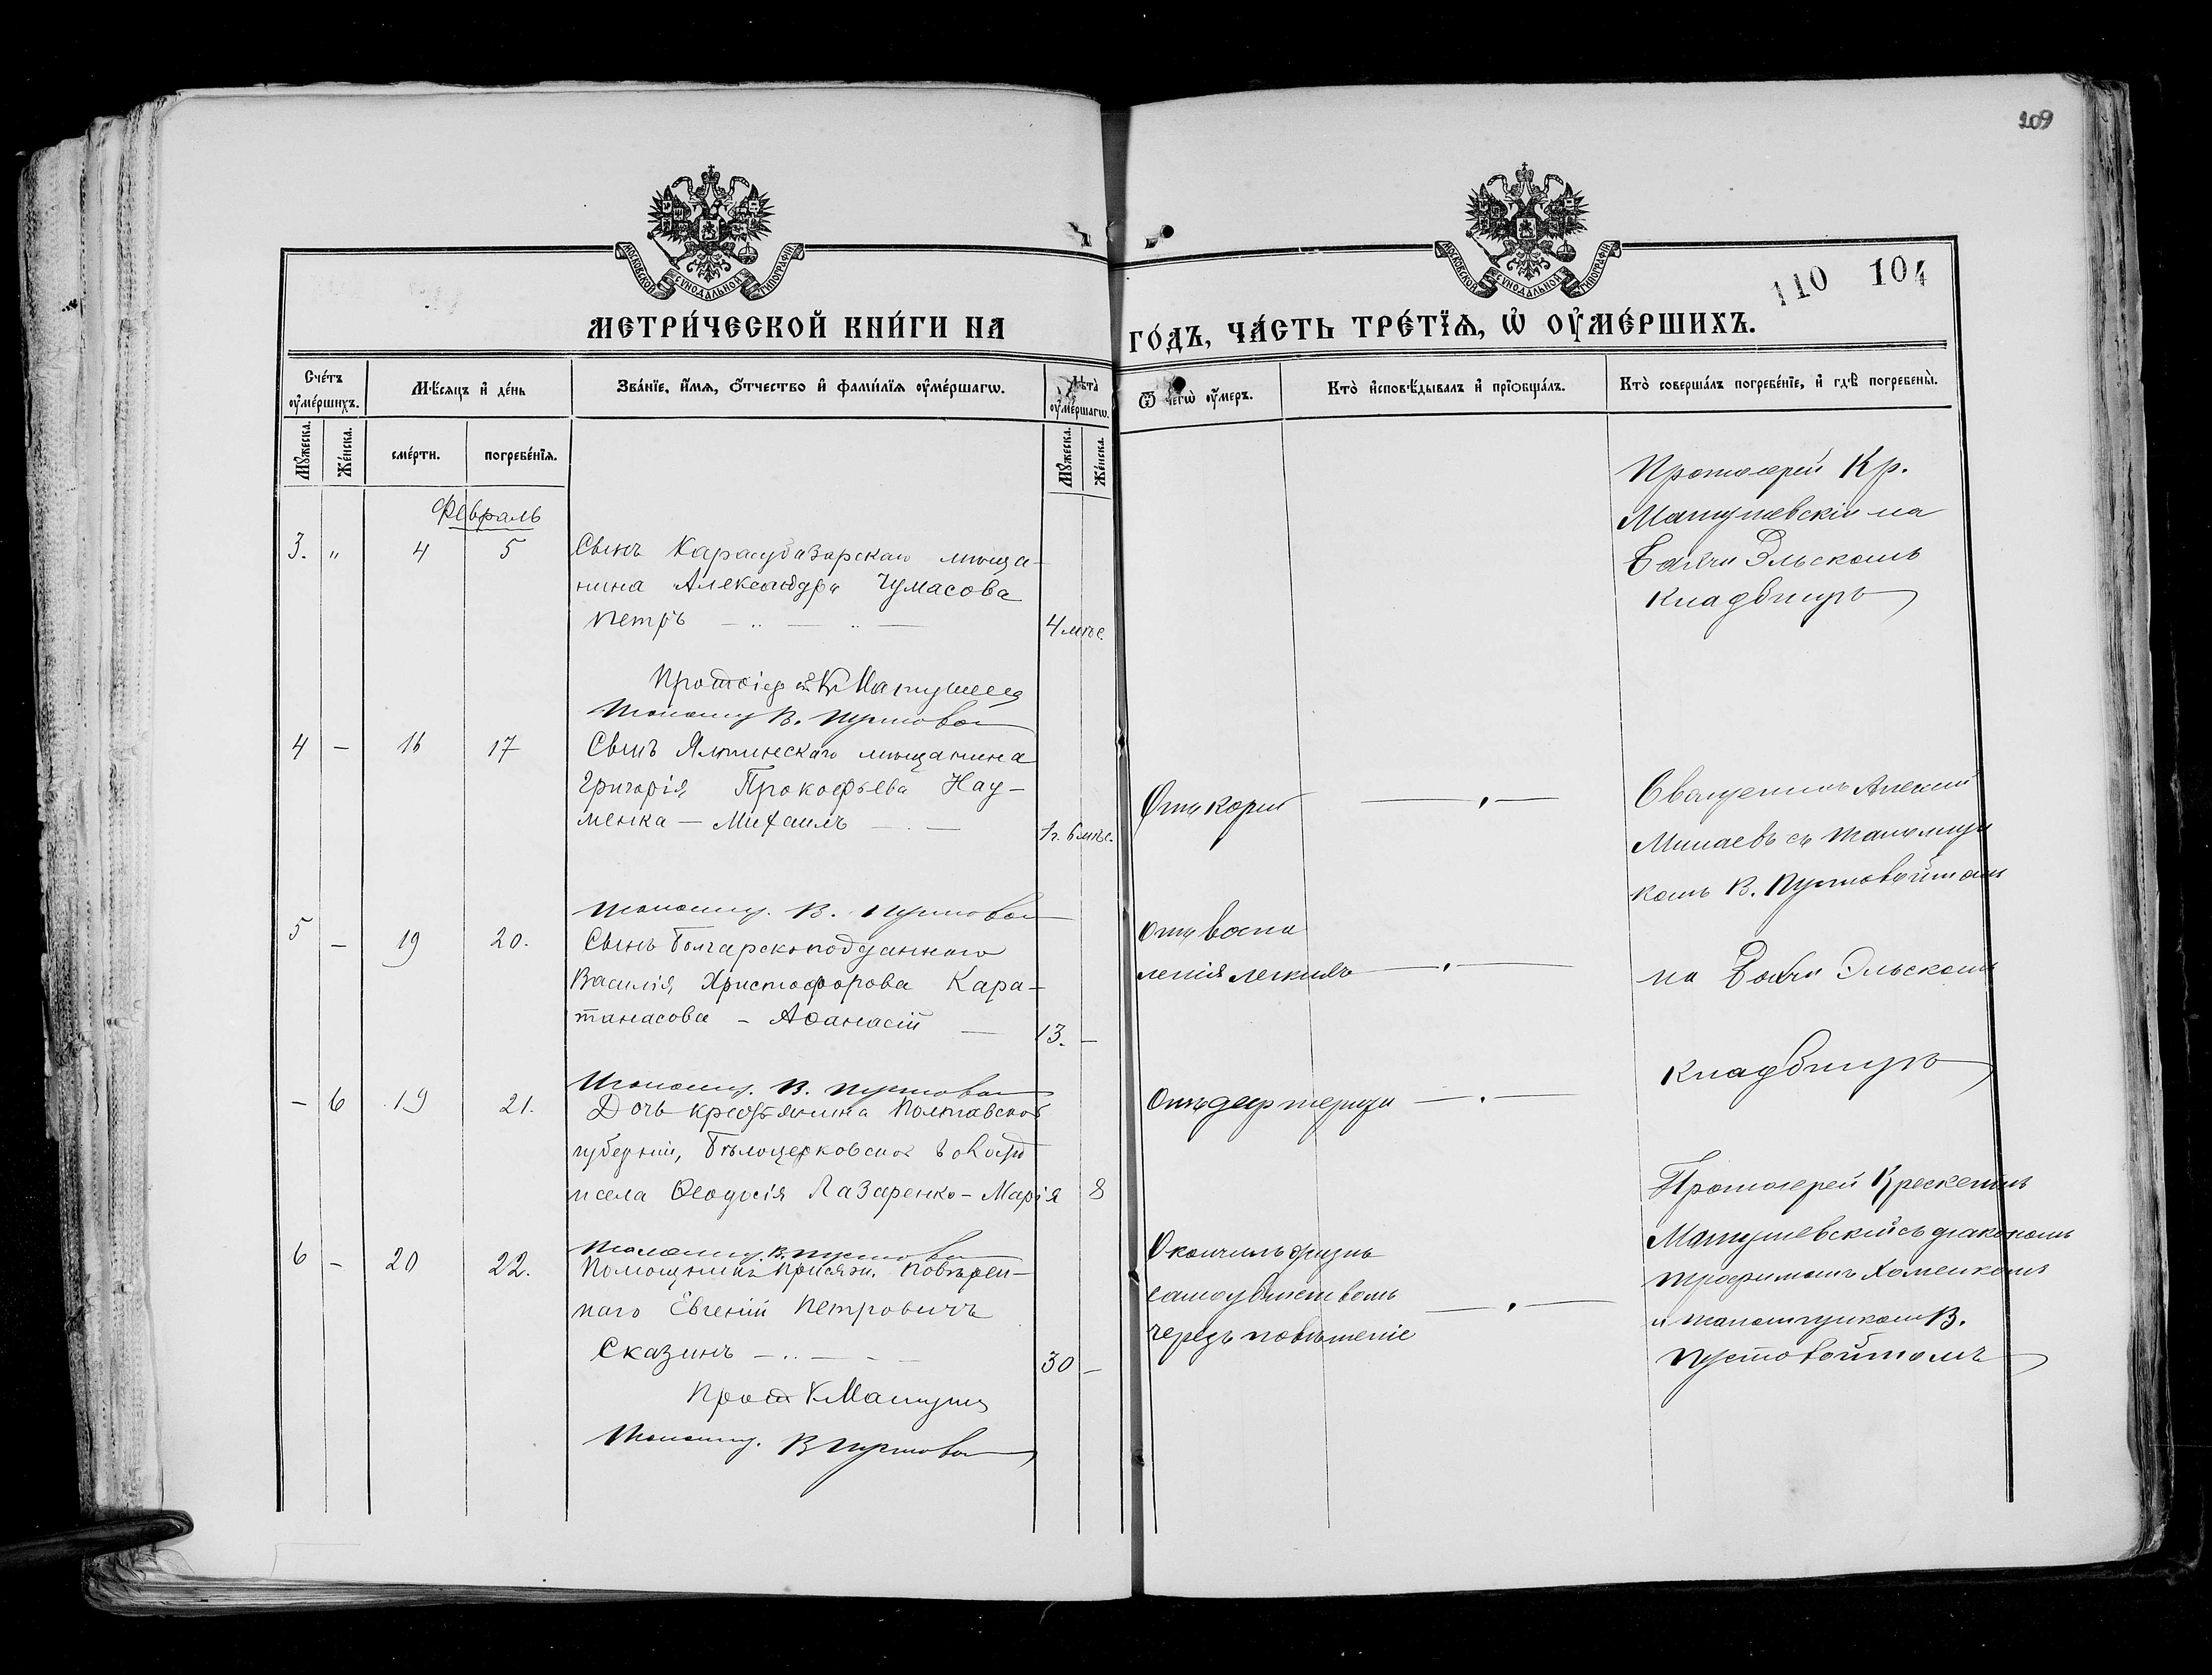 209
МОСКОВСКОЙ СѴНОДАЛЬНОЙ ТИПОГРАФІИ
МОСКОВСКОЙ СѴНОДАЛЬНОЙ ТИПОГРАФІИ
110 104
МЕТРИ́ЧЕСКОЙ КНИ́ГИ НА
ГО́ДЪ, ЧА́СТЬ ТРЕ́ТЇѦ, Ѡ҆ ОУ҆МЕ́РШИХЪ.
Сче́тъ оу҆ме́ршихъ.
Мѣ́сяцъ и҆ де́нь
Зва́нїе, и҆́мя, ѻ҆́тчество и҆ фами́лїя оу҆ме́ршагѡ.
Лѣта̀ оу҆ме́ршагѡ.
Ѿ чегѡ̀ оу҆́меръ.
Кто̀ и҆сповѣ́дывалъ и҆ прїѡбща́лъ.
Кто̀ соверша́лъ погребе́нїе, и҆ гдѣ̀ погребены̀.
Мꙋ́жеска.
Же́нска.
сме́рти.
погребе́нїя.
Мꙋ́жеска.
Же́нска.
Февраль
3. " 4 5
Сынъ Карасубазарскаго мѣща-
нина Александра Чумасова
Петръ
4 мѣс.
Протоіерей Кр.
Матушевскій на
Эльскомъ
кладбищѣ
Протоіерей Кр Матушев
В. Пустовой
4 – 16 17
Сынъ Ялтинскаго мѣщанина
Григорія Прокофьева Нау-
менка – Михаилъ
1 г. 6 мѣс.
Отъ кори
Священникъ Алексій
Минаевъ съ псаломщи
комъ В. Пустовойтомъ
Псаломщ. В. Пустовой
5 – 19 20.
Сынъ Болгарскоподданнаго
Василія Христофорова Кара-
танасова – Аѳанасій
13. –
Отъ воспа
ленія легкихъ
на Эльскомъ
кладбищѣ
Псаломщ. В. Пустовой
– 6 19 21.
Дочь крестьянина Полтавской
губерніи, Бѣлоцерковской волости
и села Ѳеодосія Лазаренко – Марія
8
Отъ дифтерита
Псаломщ. В. Пустовой
6 – 20 22.
Помощникъ Присяжн. Повѣрен-
наго Евгеній Петровичъ
Сказинъ
30 –
Окончилъ жизнь
самоубійствомъ
черезъ повѣшеніе
Протоіерей Крескентъ
Матушевскій съ діакономъ
Трофимомъ Хоменкомъ
и псаломщикомъ В.
Пустовойтомъ
Прот К Матуш
Псаломщ. В Пустовой